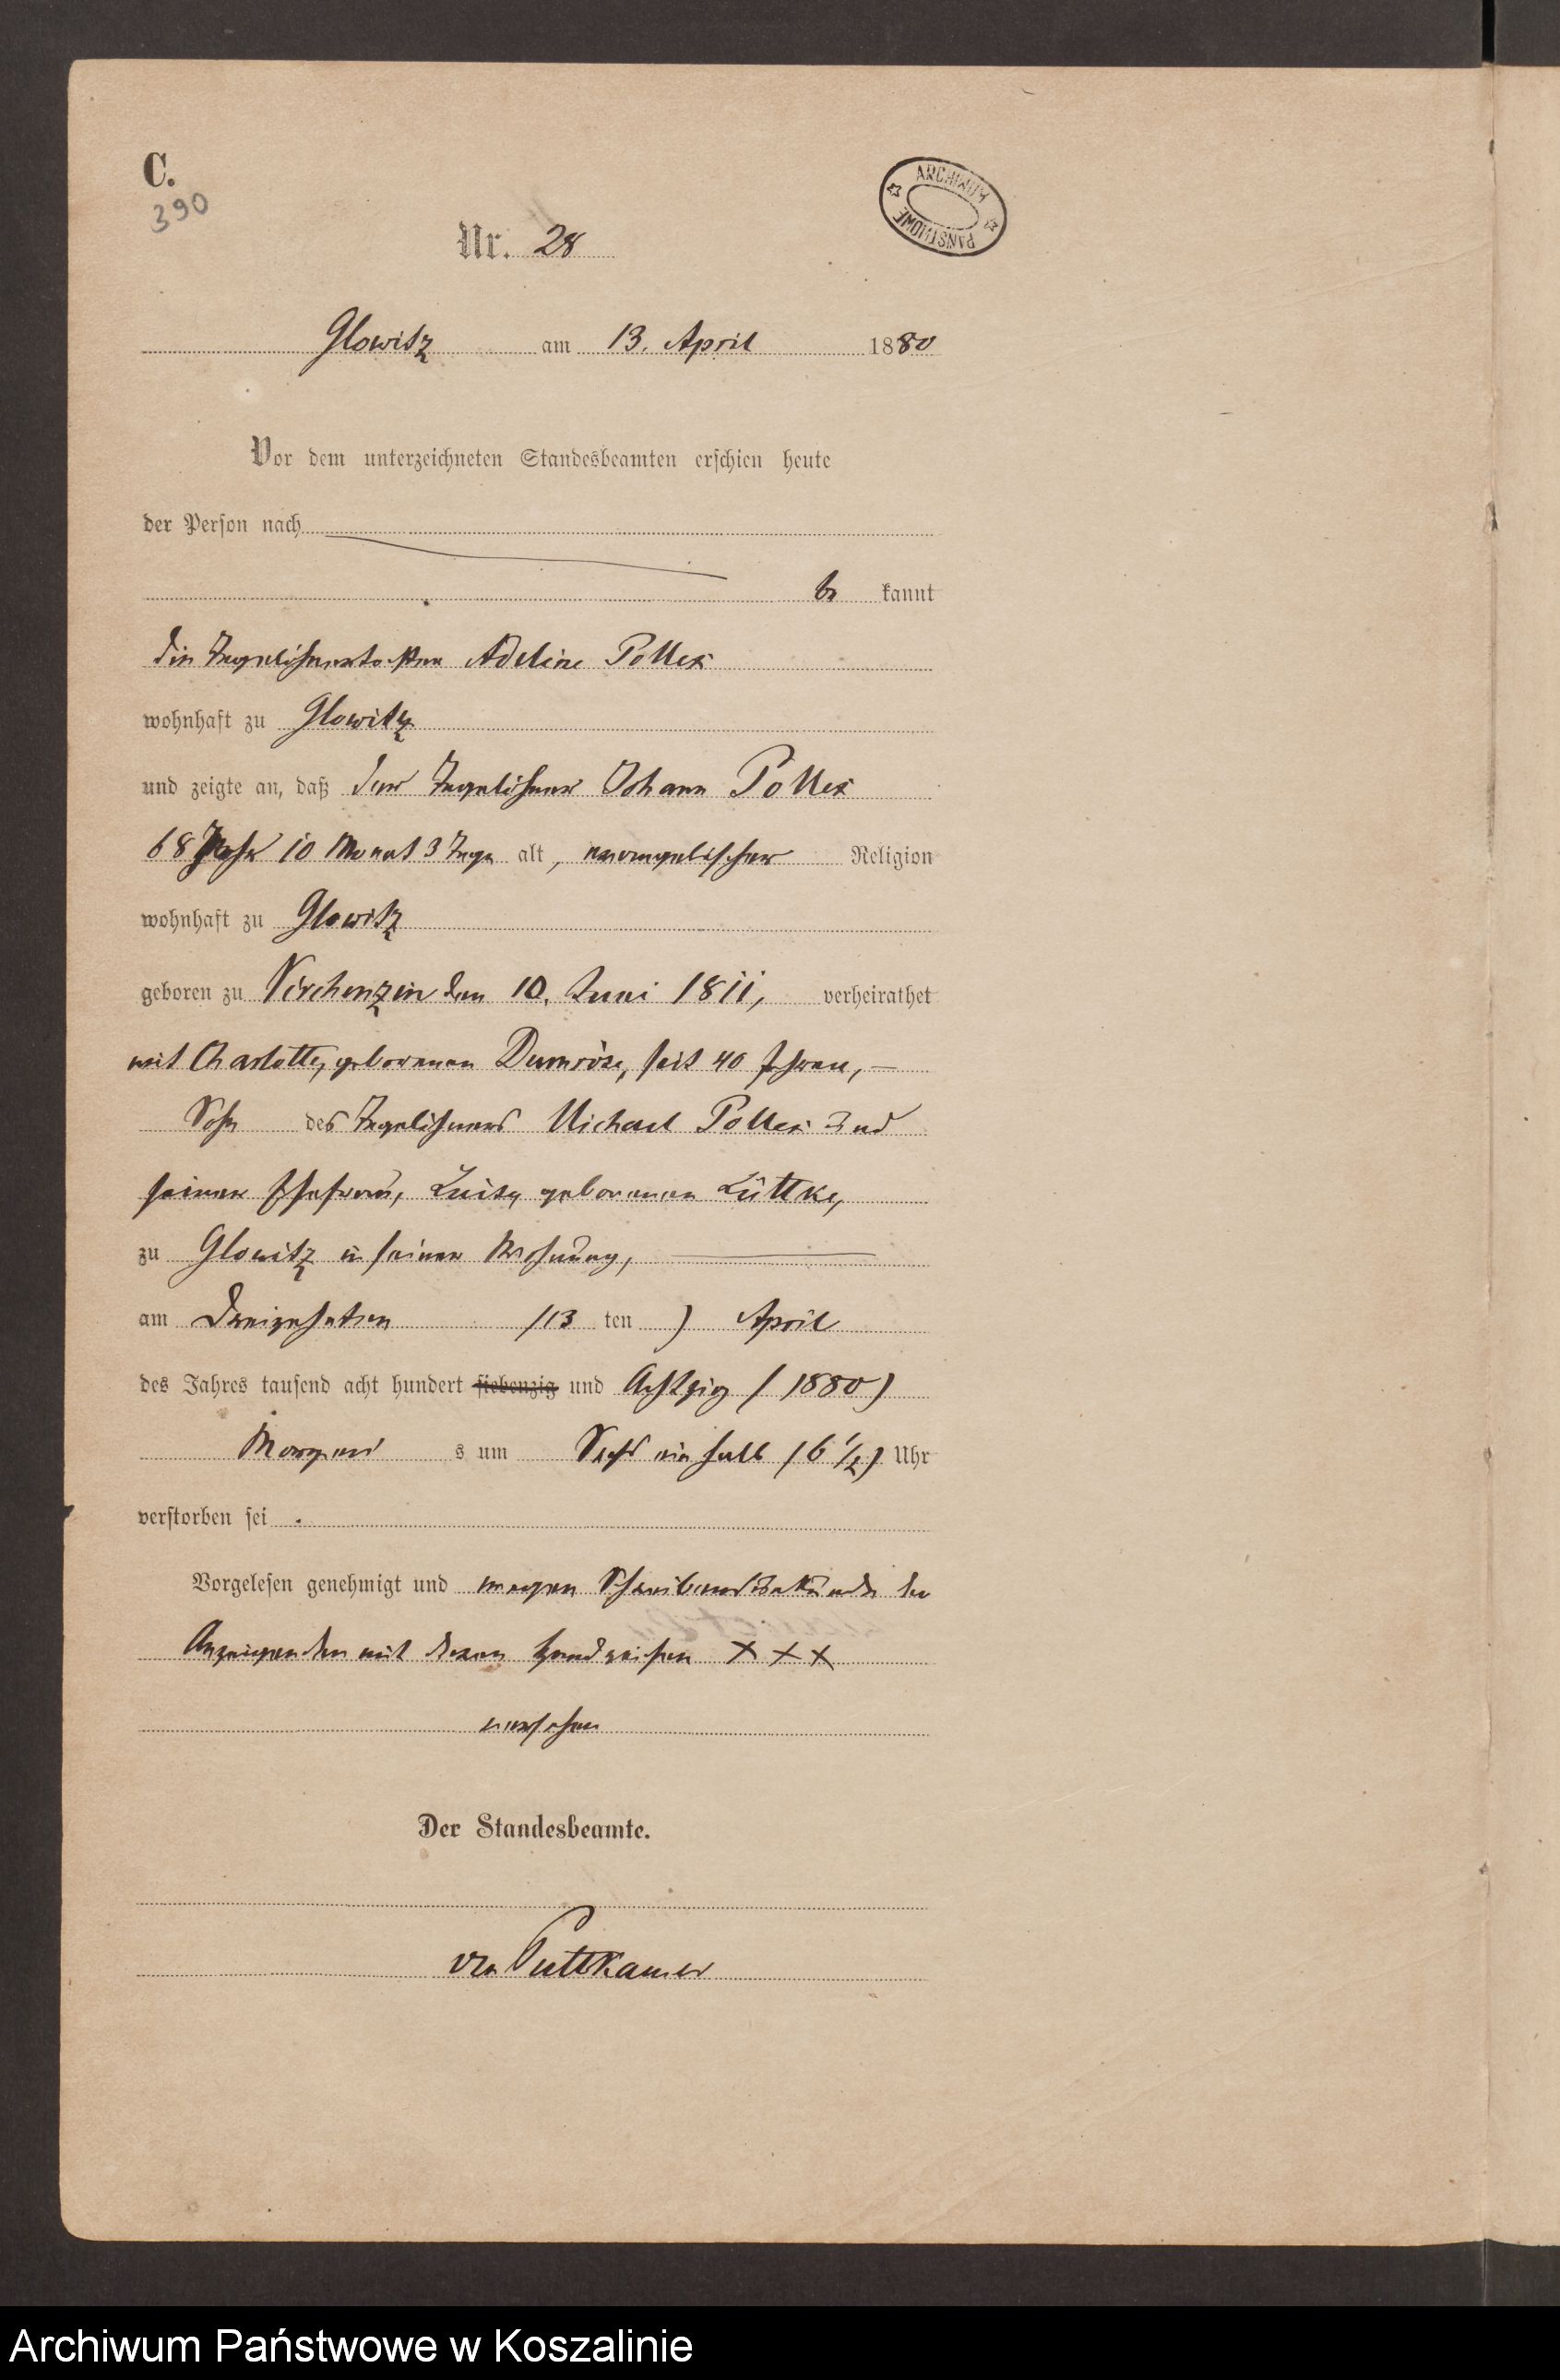 C.
390
ARCHIWUM PAŃSTWOWE
Nr. 28
Glowitz am 13. April 1880
Vor dem unterzeichneten Standesbeamten erschien heute
der Person nach
be kannt
die Tagelöhnertochter Adeline Pollex
wohnhaft zu Glowitz
und zeigte an, daß der Tagelöhner Johann Pollex
68 Jahr 10 Monat 3 Tage alt, evangelischer Religion
wohnhaft zu Glowitz
geboren zu Virchenzin den 10. Juni 1811, verheirathet
mit Charlotte, geborenen Dumröse, seit 40 Jahren, —
Sohn des Tagelöhners Michael Pollex und
seiner Ehefrau, Luise, geborenen Lüttke,
zu Glowitz in seiner Wohnung,
am Dreizehnten (13 ten ) April
des Jahres tausend acht hundert siebenzig und Achtzig (1880)
Morgens s um Sechs ein halb (6 1/2) Uhr
verstorben sei .
Vorgelesen genehmigt und wegen Schreibensunkunde der
Anzeigenden mit deren Handzeichen XXX
versehen
Der Standesbeamte.
von Puttkamer
Archiwum Państwowe w Koszalinie